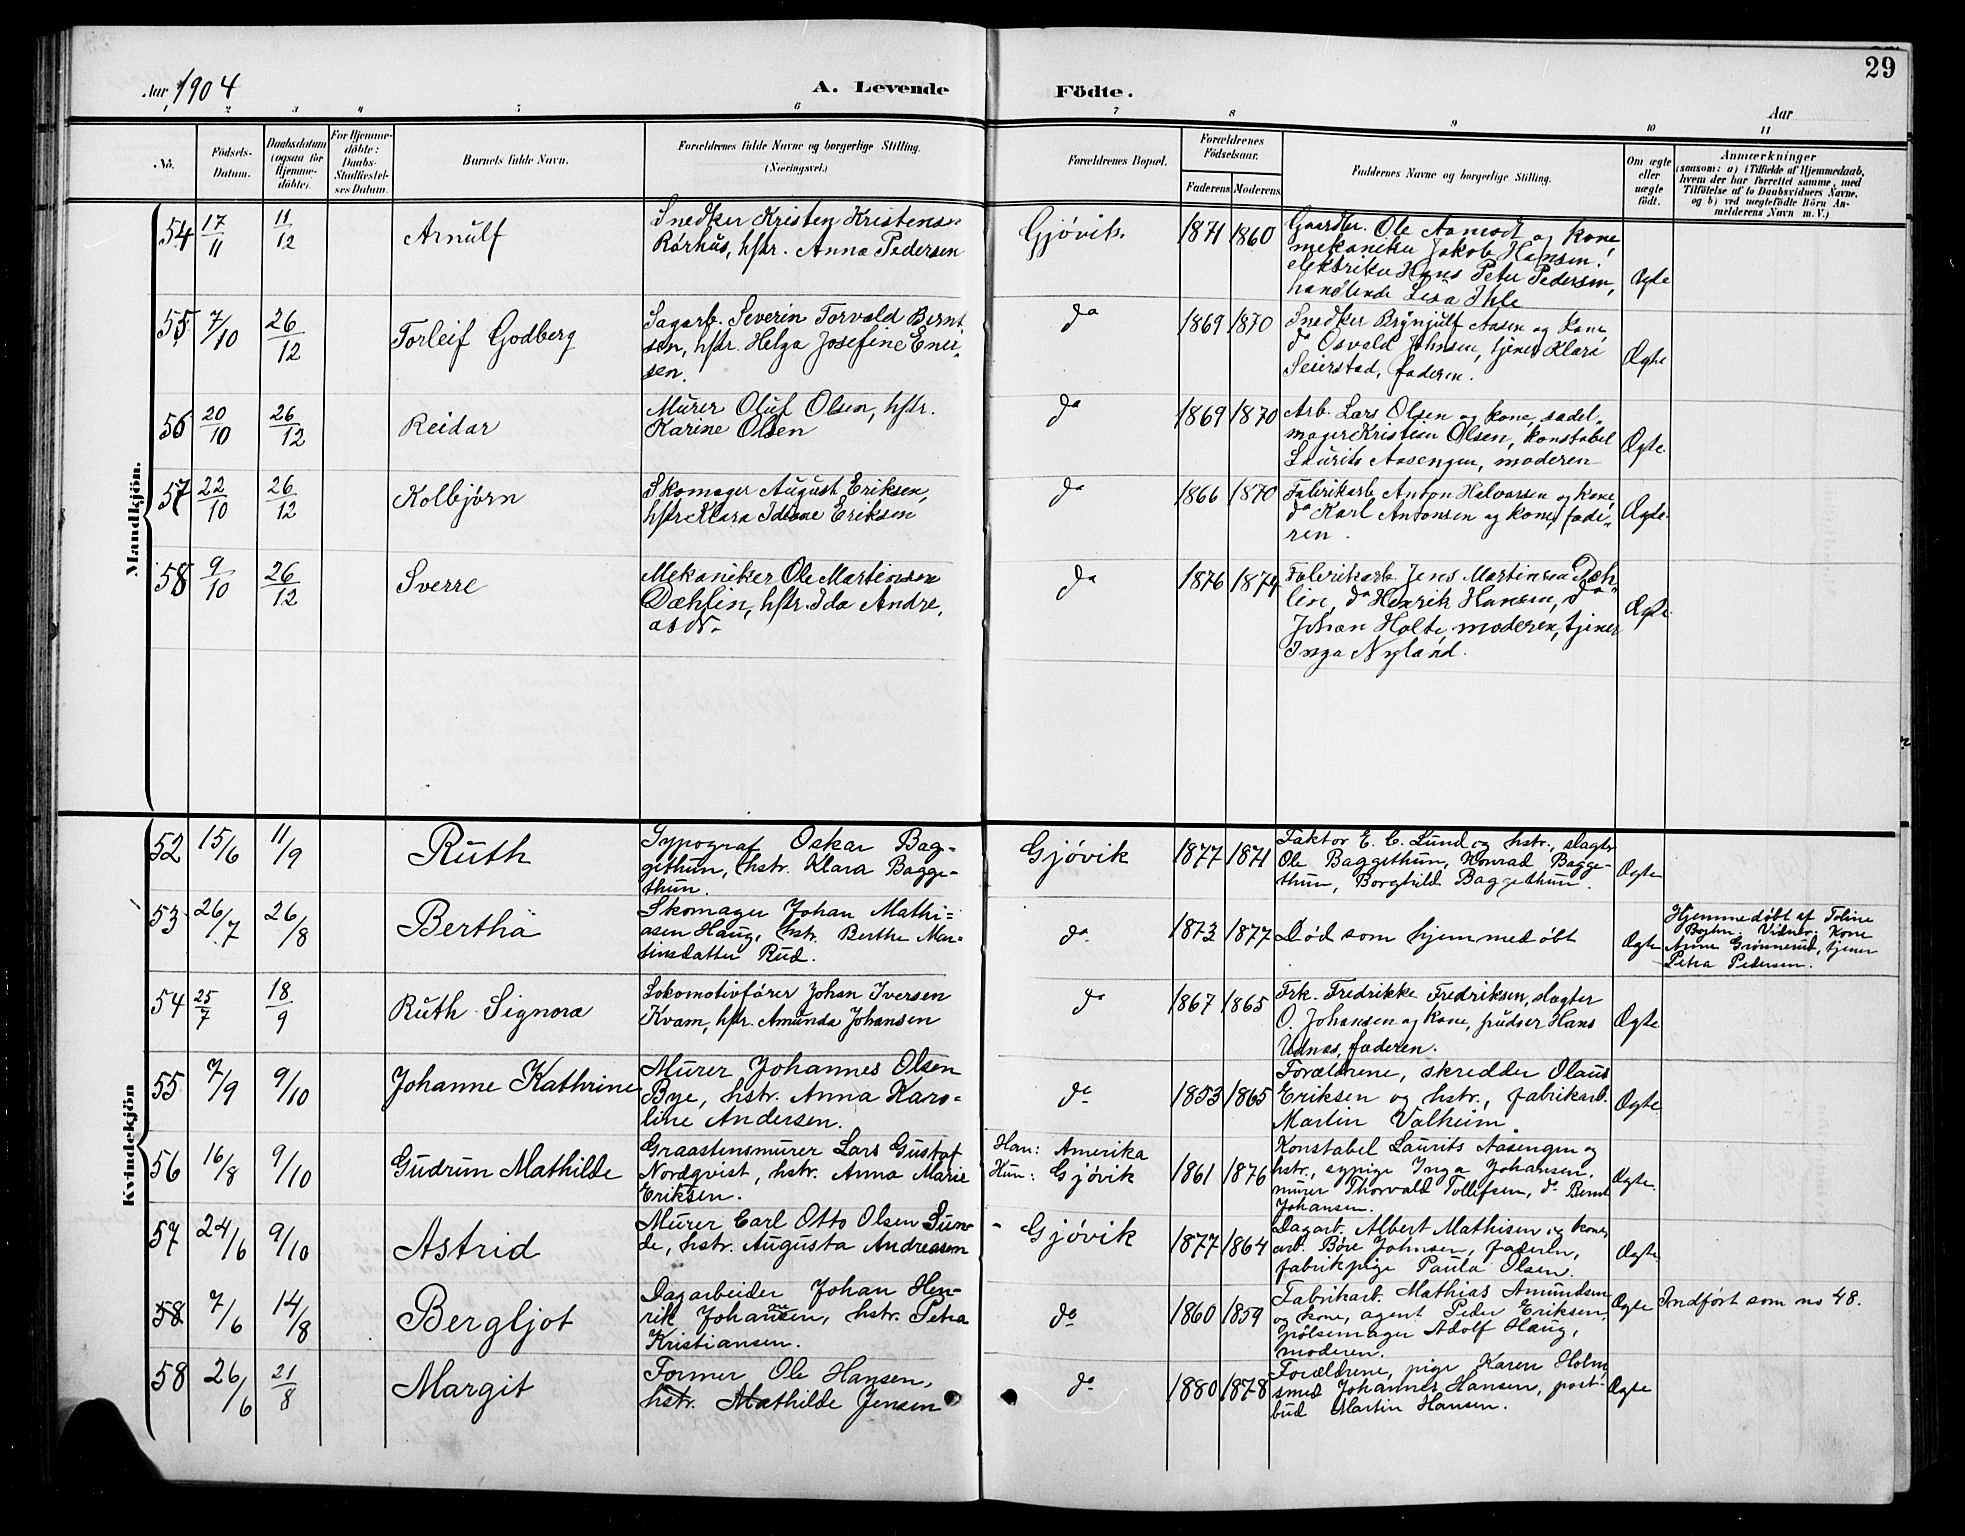 29
Aar 1904
A. Levende Födte.
Aar
1 2 3 4 5 6 7 8 9 10 11
No.
Födsels-Datum.
Daabsdatum (ogsaa for Hjemme-döbte).
For Hjemme-döbte: Daabs-Stadfæstel-ses Datum.
Barnets fulde Navn.
Forældrenes fulde Navne og borgerlige Stilling. (Næringsvei.)
Forældrenes Bopæl.
Forældrenes Födselsaar.
Faderens. Moderens.
Faddernes Navne og borgerlige Stilling.
Om ægte eller uægte födt.
Anmærkninger
(saasom: a) i Tilfælde af Hjemmedaab, hvem der har forrettet samme, med Tilföielse af to Daabsvidners Navne, og b) ved uægtefödte Börn An-melderens Navn m.V.)
Mandkjön.
54 17/11 11/12 Arnulf
Snedker Kristen Kristensen
Rørhus, hstr. Anna Pedersen
Gjøvik. 1871 1860
Gaardbr. Ole Aamodt og kone,
mekaniker Jakob Hansen,
elektriker Hans Peter Pedersen,
handlende Lisa Ihle
Ægte
55 7/10 26/12 Torleif Godberg
Sagarb. Severin Torvald Bernt
sen, hstr. Helga Josefine Ener-
sen.
da 1869 1870
Snedker Brynjulf Aasen og kone,
da Osvald Johnsen, tjener Klara
Seierstad, faderen.
Ægte
56 20/10 26/12 Reidar
Murer Oluf Olsen, hstr.
Karine Olsen
da 1869 1870
Arb. Lars Olsen og kone, sadel-
mager Kristian Olsen, konstabel
Laurits Aasengen, moderen
Ægte.
57 22/10 26/12 Kolbjørn
Skomager August Eriksen,
hstr Klara Eriksen
da 1866 1870
Fabrikarb. Anton Halvorsen og kone,
da Karl Antonsen og kone, fade-
ren.
Ægte.
58 9/10 26/12 Sverre
Mekaniker Ole Martinsen
Dæhlin, hstr. Ida Andre,
asdr.
da 1876 1874
Fabrikarb. Jens Martinsen Dæh
lin, da Henrik Hansen, da
Johan Holte, moderen, tjener
Inga Nyland.
Ægte.
Kvindekjön
52 15/6 11/9 Ruth
Typograf Oskar Bag-
gethun, hstr. Klara Bagge-
thun.
Gjøvik 1877 1871
Faktor E. C. Lund og hstr., slagter
Ole Baggethun, Konrad Bagge-
thun, Borghild Baggethun.
Ægte
53 26/7 26/8 Bertha
Skomager Johan Mathi=
asen Haug, hstr. Berthe Mar=
tinsdatter Rud.
da. 1873 1877
Død som hjemmedøbt
Ægte
Hjemmedøbt af Toline
Vidner: Kone
Anne Grønnerud, tjener
Petra Pedersen.
54 25/7 18/9 Ruth Signora
Lokomotivfører Johan Iversen
Kvam, hstr. Amunda Johansen
da 1867 1865
Frk. Fredrikke Fredriksen, slagter
O. Johansen og kone, pudser Hans
Udnæs, faderen.
Ægte
55 7/9 9/10 Johanne Kathrine
Murer Johannes Olsen
Bye, hstr. Anna Karo=
line Andersen.
da 1853 1865
Forældrene, skredder Olaus
Eriksen og hstr., fabrikarb.
Martin Valheim.
Ægte
56 16/8 9/10 Gudrun Mathilde
Graastensmurer Lars Gustaf
Nordqvist, hstr. Anna Marie
Eriksen.
Han: Amerika
Hun: Gjøvik
1861 1876
Konstabel Laurits Aasengen og
hstr., sypige Inga Johansen,
murer Thorvald Tollefsen, da Bernt
Johansen.
Ægte.
57 24/6 9/10 Astrid
Murer Carl Otto Olsen Sun-
de, hstr. Augusta Andreasen
- Gjøvik 1877 1864
Dagarb. Albert Mathisen og kone,
arb. Børe Johnsen, faderen,
fabrikpige Paula Olsen.
Ægte.
58 7/6 14/8 Bergljot
Dagarbeider Johan Hen-
rik Johansen, hstr. Petra
Kristiansen.
da 1860 1859
Fabrikarb. Mathias Amundsen
og kone, agent Peder Eriksen,
pølsemager Adolf Haug,
moderen.
Ægte
Indført som no 48.
58 26/6 21/8 Margit
Former Ole Hansen,
hstr. Mathilde Jensen
da 1880 1878
Forældrene, pige Karen Holm,
smed Johannes Hansen, post-
bud Martin Hansen.
Ægte